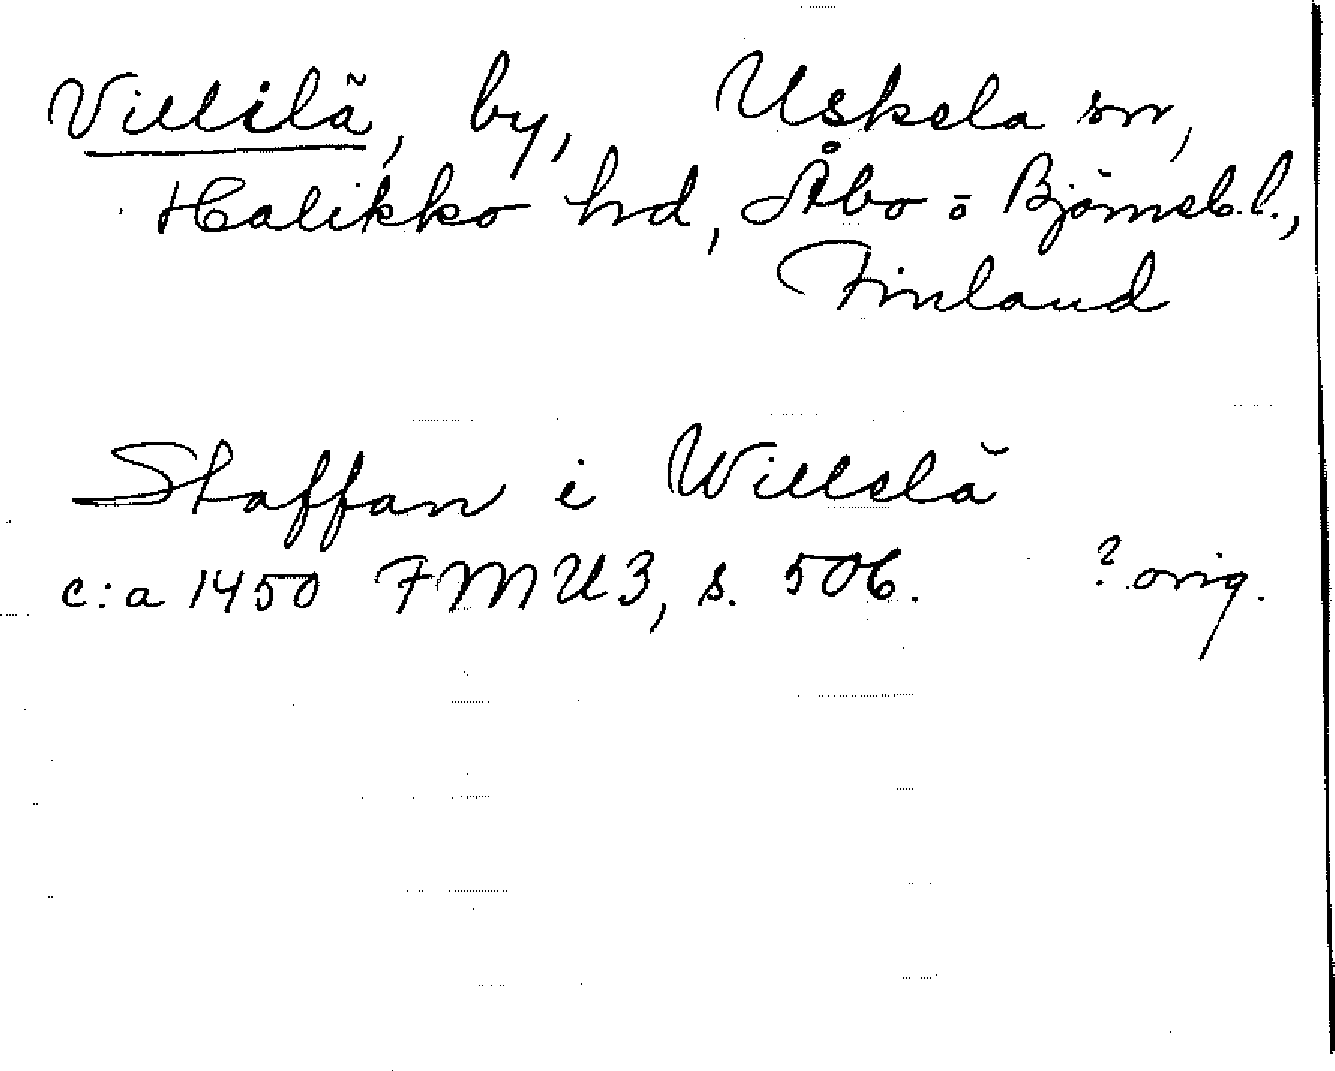 Villilä, by, Uskela sn,
Halikko hd, Åbo o Björneb. l.,
Finland
Staffan i Willelä
c:a 1450 FMU 3, s. 506. ? orig.